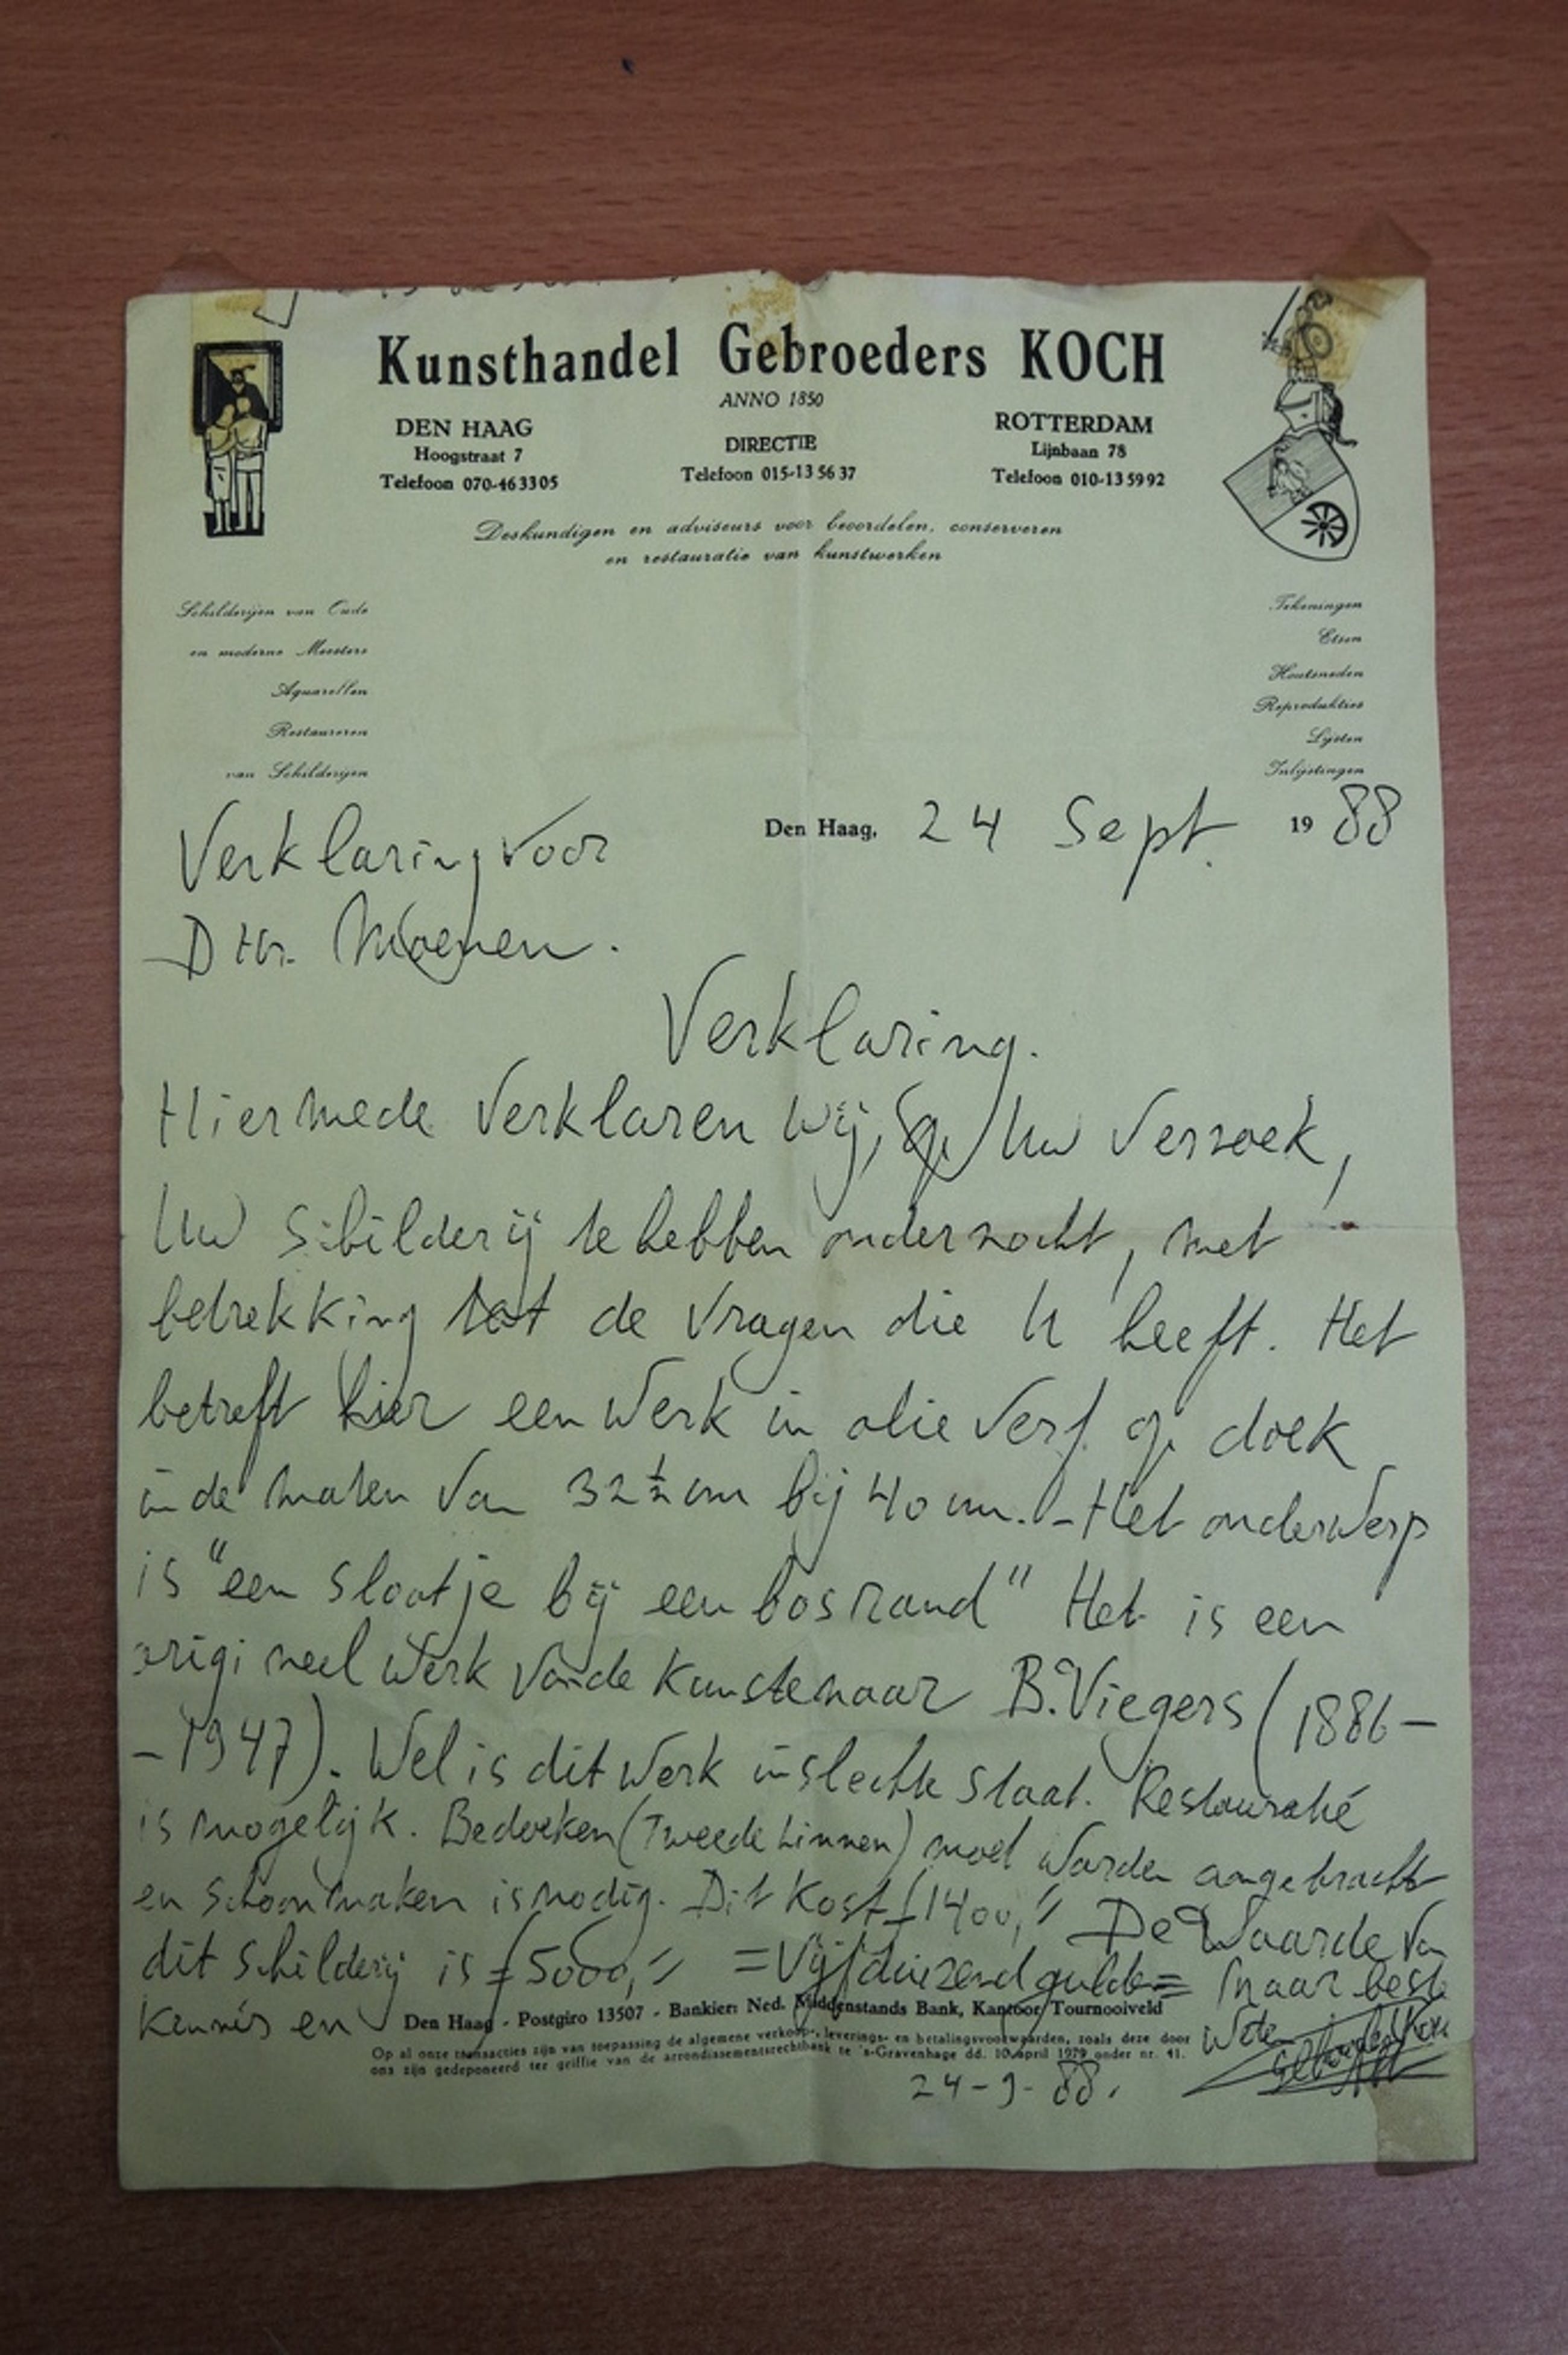 Kunsthandel Gebroeders KOCH
ANNO 1850
DEN HAAG
Hoogstraat 7
Telefoon 070-463305
DIRECTIE
Telefoon 015-13 56 37
ROTTERDAM
Lijnbaan 78
Telefoon 010-13 59 92
Deskundigen en adviseurs voor beoordelen, conserveren
en restauratie van kunstwerken
Schilderijen van Oude
en moderne Meesters
Aquarellen
Restaureren
van Schilderijen
Tekeningen
Etsen
Houtsneden
Reprodukties
Lijsten
Inlijstingen
Den Haag, 24 Sept. 19 88
Verklaring voor
D Hr.
Verklaring.
Hiermede Verklaren wij, op Uw Verzoek,
Uw Schilderij te hebben onderzocht, met
betrekking tot de Vragen die U heeft. Het
betreft hier een Werk in olie Verf op doek
in de maten Van 32 1/2 cm bij 40 cm. - Het onderwerp
is "een slootje bij een bosrand" Het is een
origineel Werk Van de Kunstenaar B. Viegers (1886-
- 1947). Wel is dit Werk in slechte Staat. Restauratie
is mogelijk. Bedoeken (Tweede Linnen) moet Worden aangebracht
en Schoonmaken is nodig. Dit Kost ƒ1400,= De Waarde Van
dit Schilderij is ƒ5000,= =Vijfduizend gulden= naar beste
Kennis en Weten
Den Haag - Postgiro 13507 - Bankier: Ned. Middenstands Bank, Kantoor Tournooiveld
Op al onze transacties zijn van toepassing de algemene verkoop-, leverings- en betalingsvoorwaarden, zoals deze door
ons zijn gedeponeerd ter griffie van de arrondissementsrechtbank te 's-Gravenhage dd. 10 april 1979 onder nr. 41.
24-9-88.